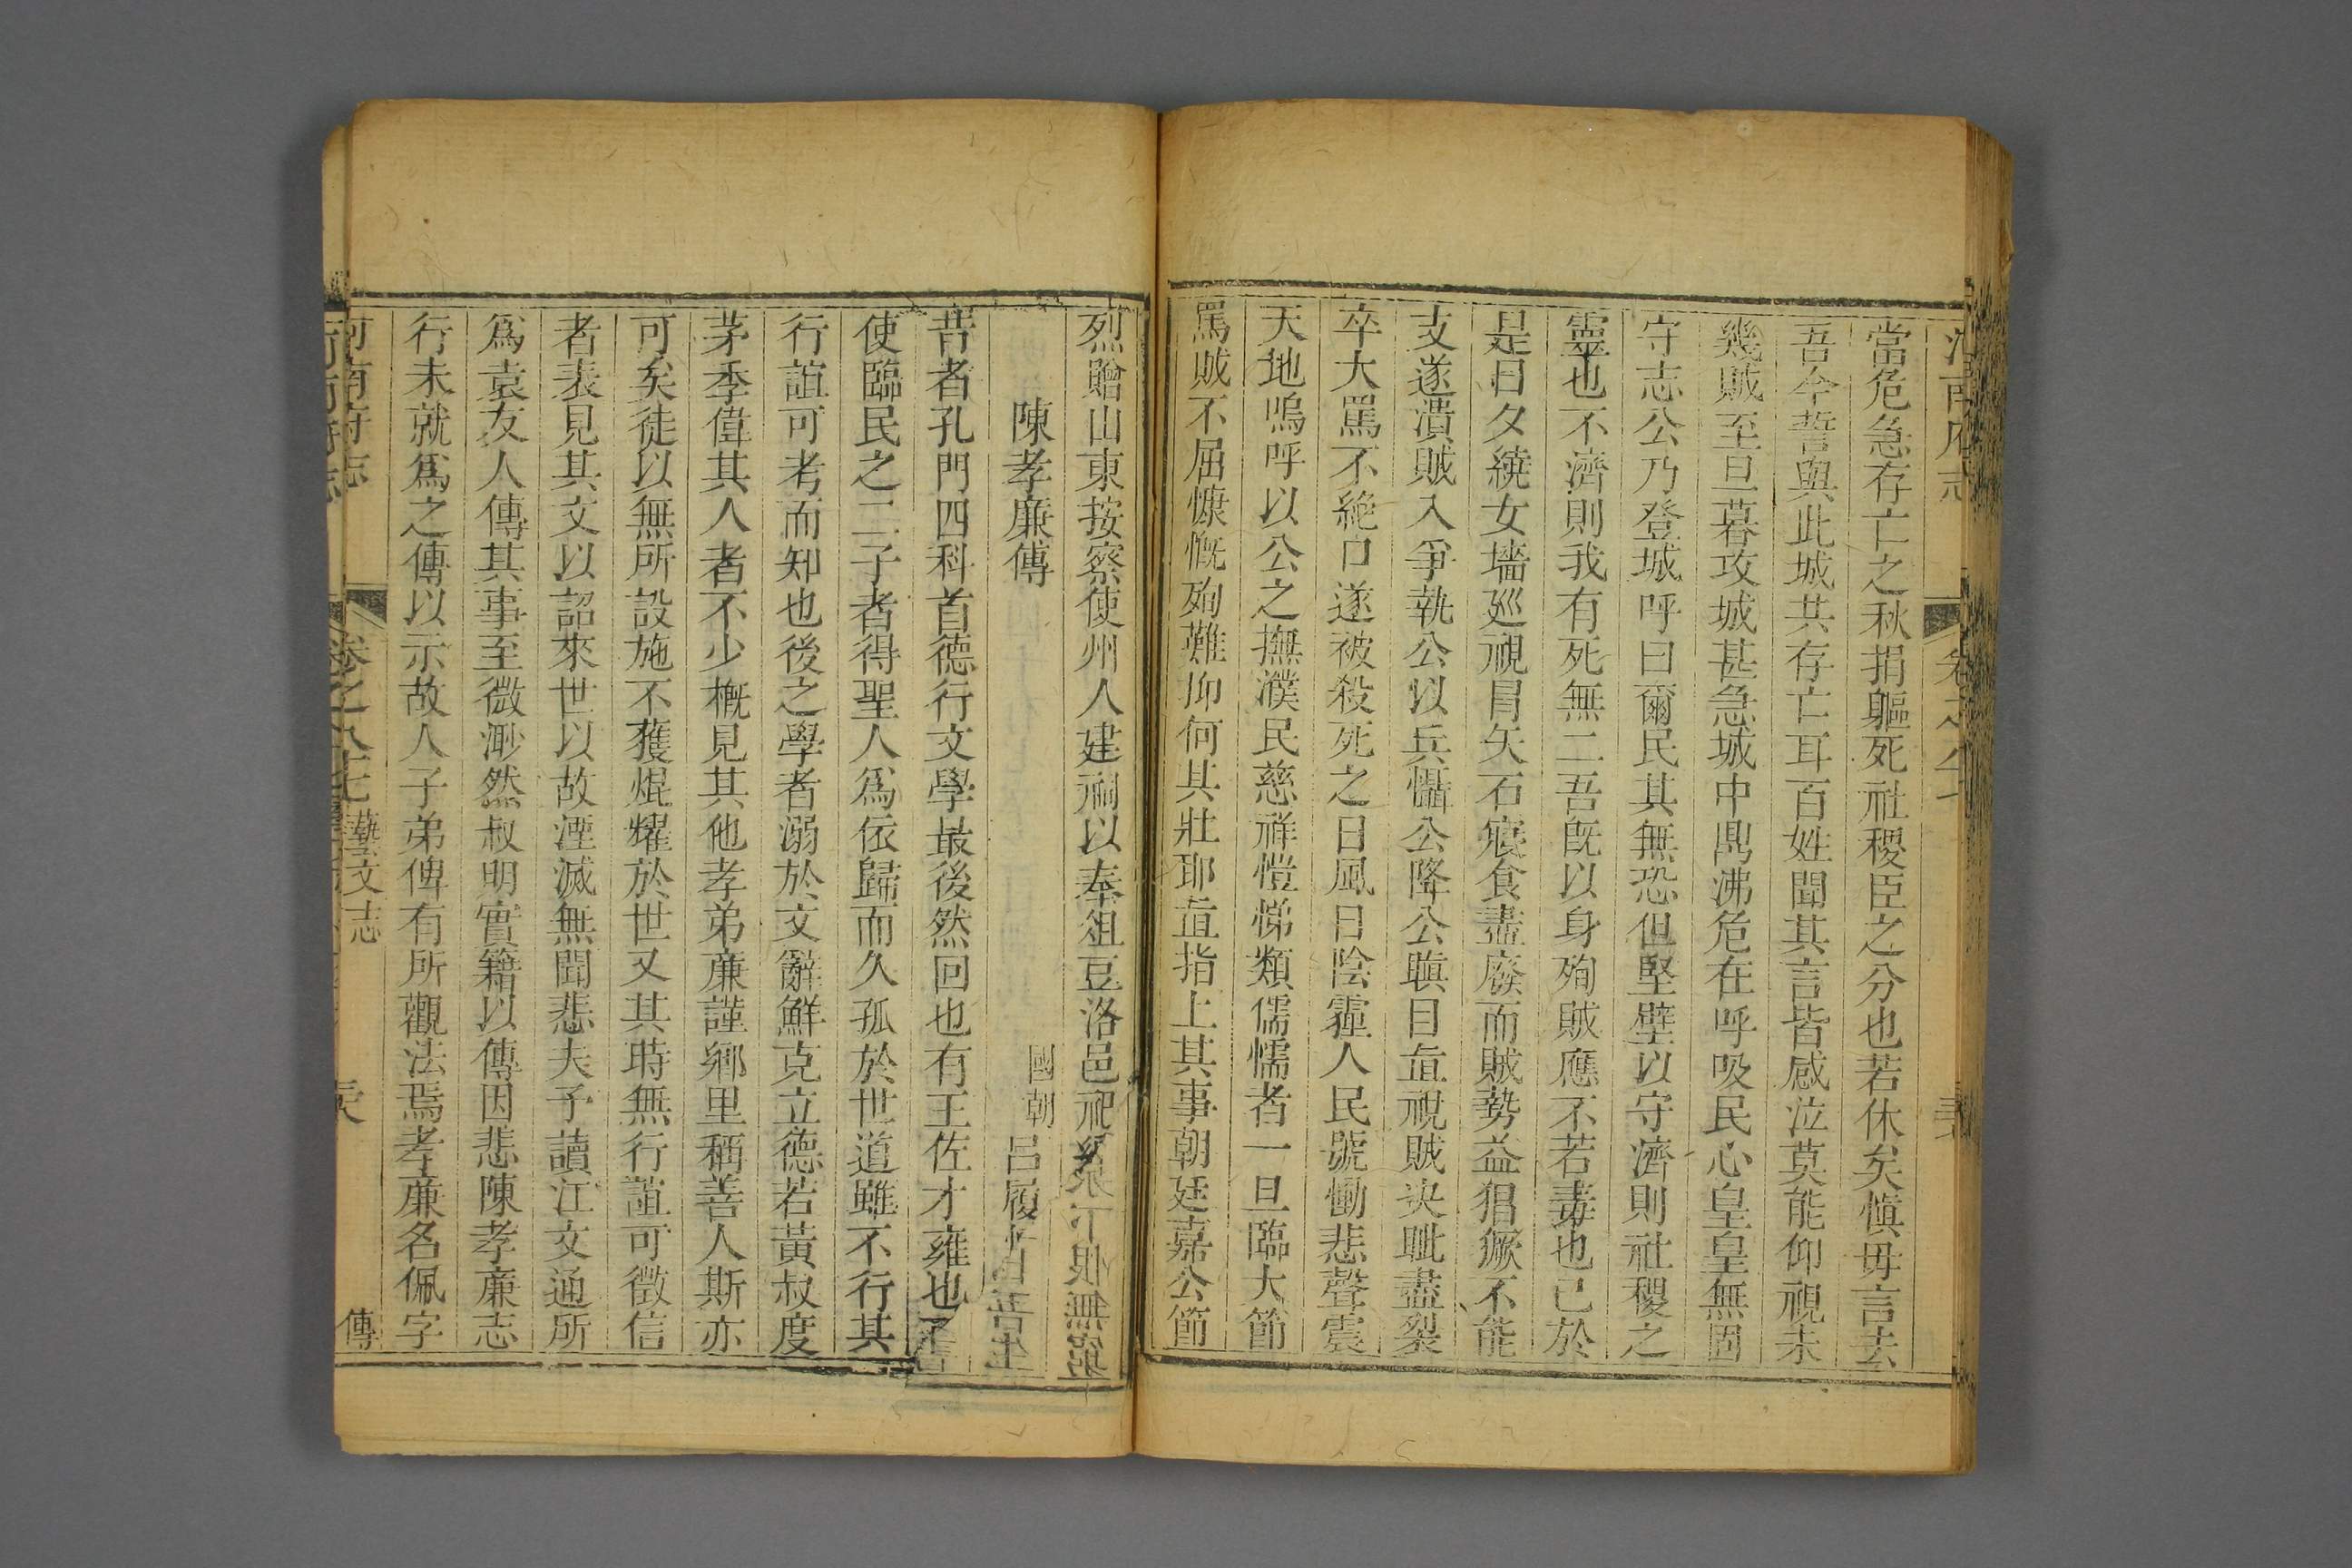 當危急存亡之秋捐軀死社稷臣之分也若休矣愼毋言去
吾今誓與此城共存亡耳百姓聞其言皆感泣莫能仰視未
幾賊至旦暮攻城甚急城中鼎沸危在呼吸民心皇皇無固
守志公乃登城呼曰爾民其無恐但堅壁以守濟則社稷之
靈也不濟則我有死無二吾旣以身殉賊應不若毒也已於
是日夕繞女墻廵視冒矢石寢食盡廢而賊勢益猖獗不能
支遂潰賊入爭執公以兵懾公降公瞋目直視賊決眦盡裂
卒大罵不絶口遂被殺死之日風日陰霾人民號慟悲聲震
天地嗚呼以公之撫濮民慈祥愷悌類儒懦者一旦臨大節
罵賊不屈慷慨殉難抑何其壯耶直指上其事朝廷嘉公節
烈贈山東按察使州人建祠以奉俎豆洛邑祀
陳孝廉傳
國朝 呂履
昔者孔門四科首德行文學最後然回也有王佐才雍也
使臨民之二子者得聖人爲依歸而久孤於世道雖不行其
行誼可考而知也後之學者溺於文辭鮮克立德若黃叔度
茅季偉其人者不少概見其他孝弟廉謹鄉里稱善人斯亦
可矣徒以無所設施不獲焜耀於世又其時無行誼可徵信
者表見其文以詔來世以故湮滅無聞悲夫予讀江文通所
爲袁友人傳其事至微渺然叔明實籍以傳因悲陳孝廉志
行未就爲之傳以示故人子弟俾有所觀法焉孝廉名佩字
河南府志
卷之八十七
藝文志
傳